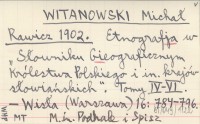 WITANOWSKI Michał
Rawicz 1902. Etnografja w
"Słowniku Gieograficznym
Królestwa Polskiego i in. krajów
słowiańskich". Tomy IV-VI.
— Wisła (Warszawa) 16: 784-796.
MT M.in. Podhale i Spisz